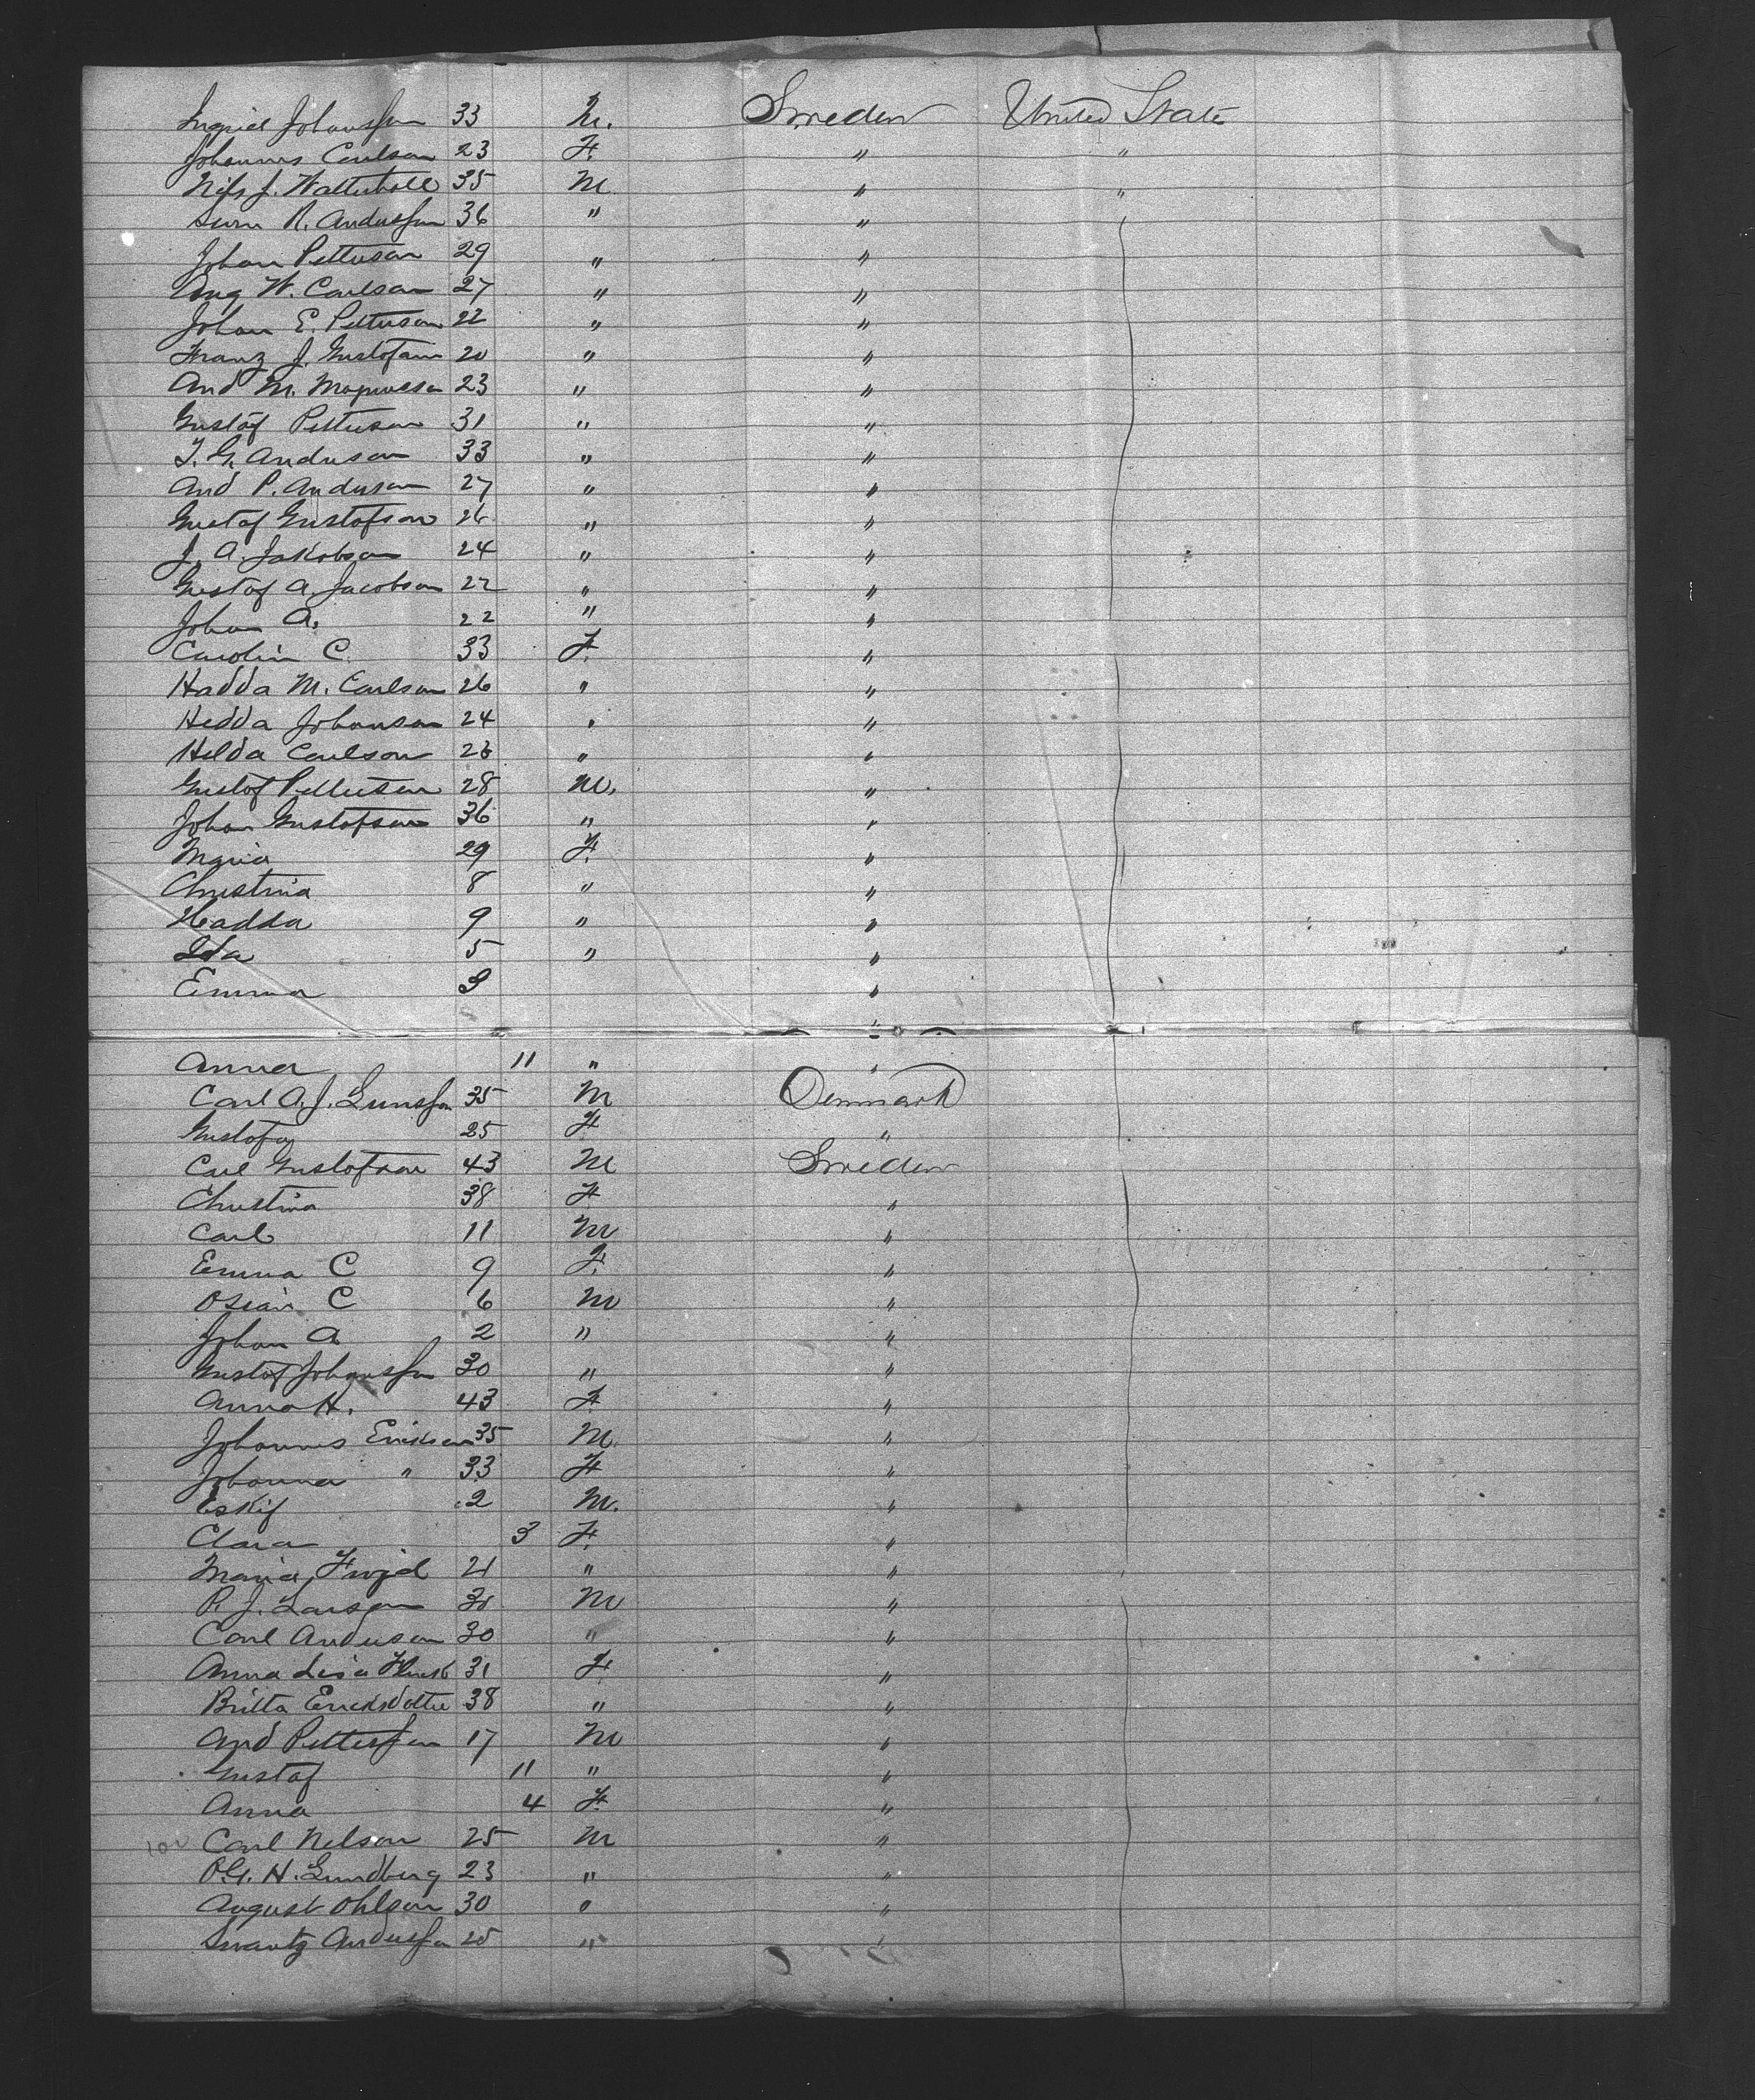 Ingrid Johansson 33 M. Sweden United State
Johannes Carlson 23 F. " "
Nils J. 35 M. " "
R. Andersson 36 " "
Johan Petterson 29 " "
Aug W. Carlson 27 " "
Johan E. Petterson 22 " "
Franz J. Gustafson 20 " "
And M. Magnusson 23 " "
Gustof Petterson 31 " "
J. G. Anderson 33 " "
And P. Anderson 27 " "
Gustaf Gustofson 26 " "
J. A. Jakobson 24 " "
Gustof A. Jacobson 22 " "
Johan A. 22 " "
Carolin C. 33 F. "
Hadda M. Carlson 26 " "
Hedda Johanson 24 " "
Hilda Carlson 26 " "
Gustof Petterson 28 M. "
Johan Gustofson 36 " "
Maria 29 F. "
Christina 8 " "
Hadda 9 " "
Ida 5 " "
Emma 3 "
Anna 11 " "
Carl A. J. 35 M Denmark
Gustofa 25 F "
Carl Gustofson 43 M Sweden
Christina 38 F "
Carl 11 M "
Emma C 9 F. "
Oscar C 6 M "
Johan A 2 " "
Gustof Johansson 30 " "
Anna H. 43 F. "
Johannes Erikson 35 M. "
Johanna " 33 F "
Eskif 2 M. "
Clara 3 F. "
Maria 21 " "
P. J. Larson 30 M "
Carl Anderson 30 " "
Anna Lisa 31 F "
Britta Ericksdotter 38 " "
And Petterson 17 M "
Gustaf 11 " "
Anna 4 F. "
100 Carl Nelson 25 M "
P. G. H. Lundberg 23 " "
August Ohlson 30 " "
Swantz Andersson 25 " "